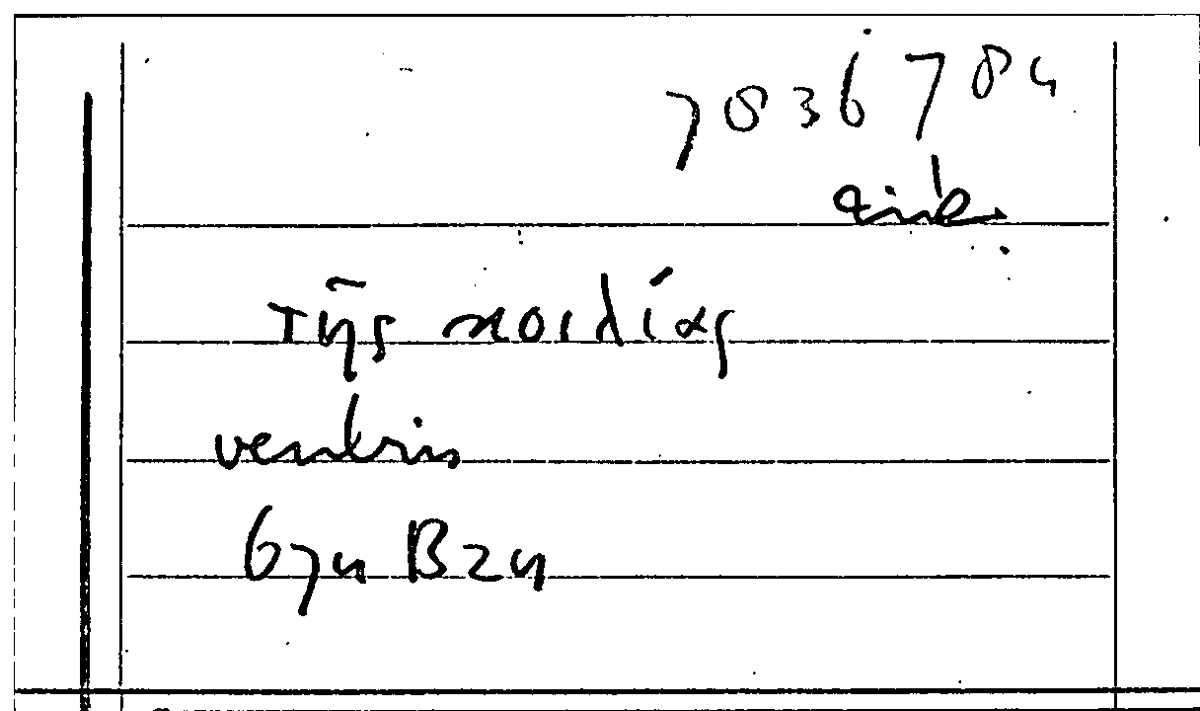 7836784
τῆς κοιλίας
ventris
674 B 24